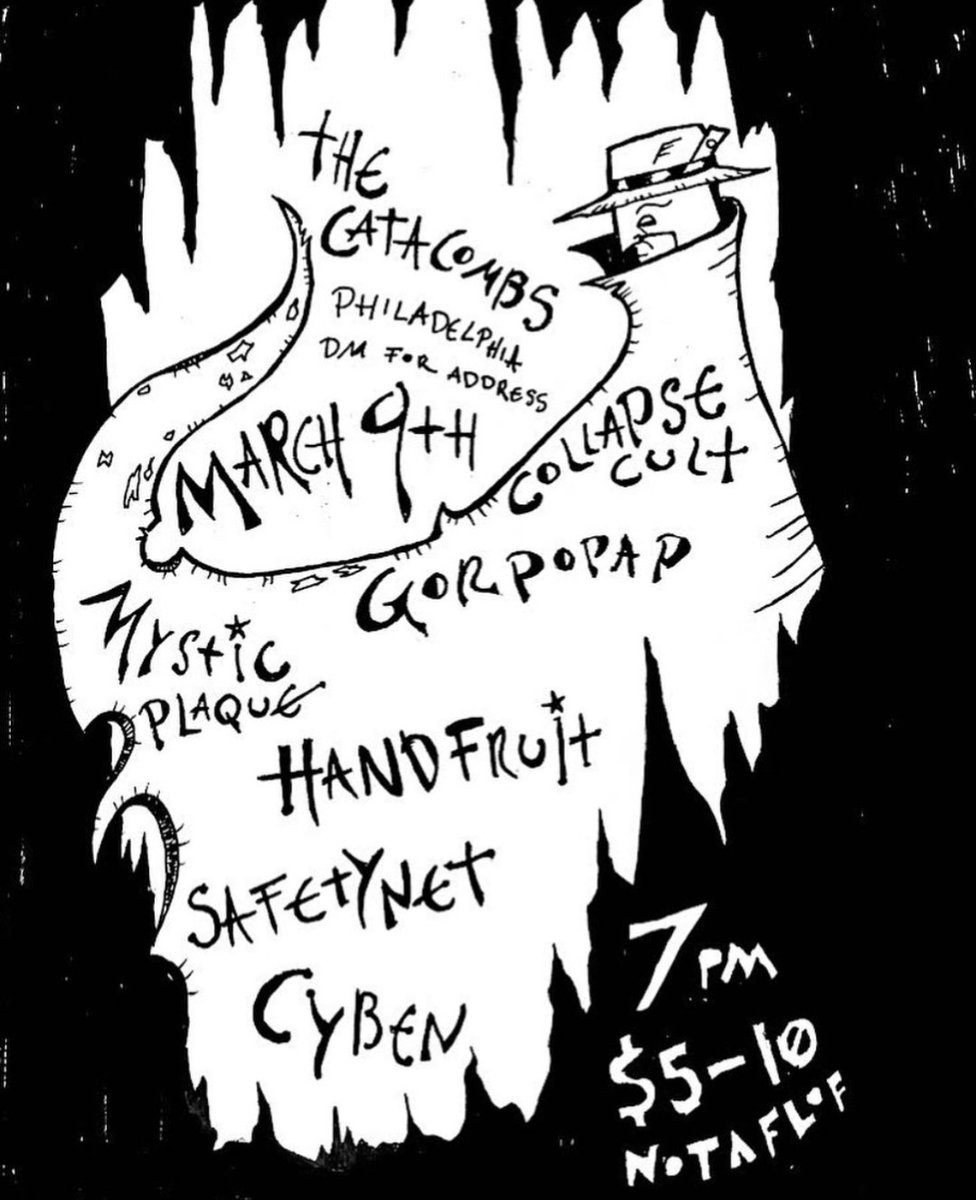 THE
CATACOMBS
PHILADELPHIA
DM FOR ADDRESS
MARCH 9TH
COLLAPSE
CULT
GORPOPAP
MYSTIC
PLAQUE
HANDFRUIT
SAFETYNET
CYBEN
7PM
$5-10
NOTAFLOF